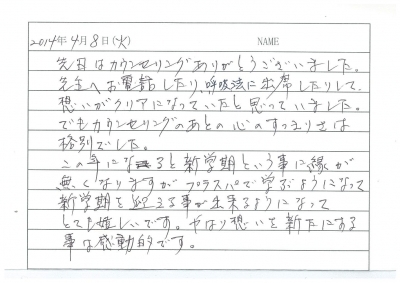 2014年4月8日(火) NAME
先日はカウンセリングありがとうございました。
先生へお電話したり、呼吸法に出席したりして、
想いがクリアになっていたと思っていました。
でもカウンセリングのあとの心のすっきりさは
格別でした。
この年になると新学期という事に縁が
無くなりますがプラスパで学ぶようになって
新学期を迎える事が出来るようになって
とても嬉しいです。やはり想いを新たにする
事は感動的です。